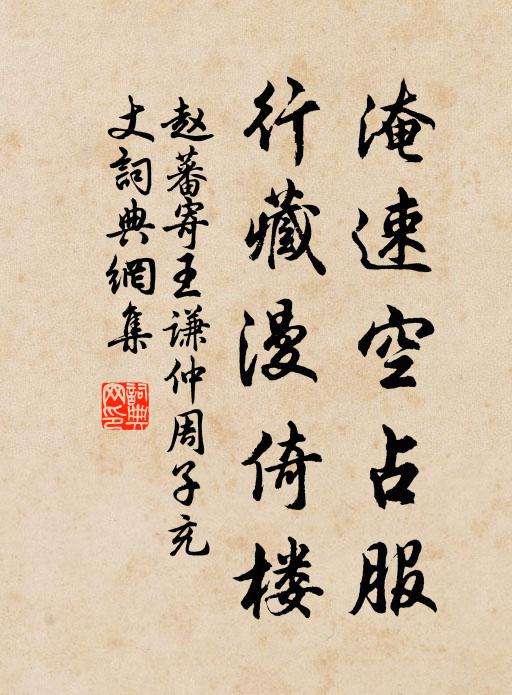 淹速空占服
行藏漫倚楼
赵蕃寄王谦仲周子充
丈詞典網集
詞典網印